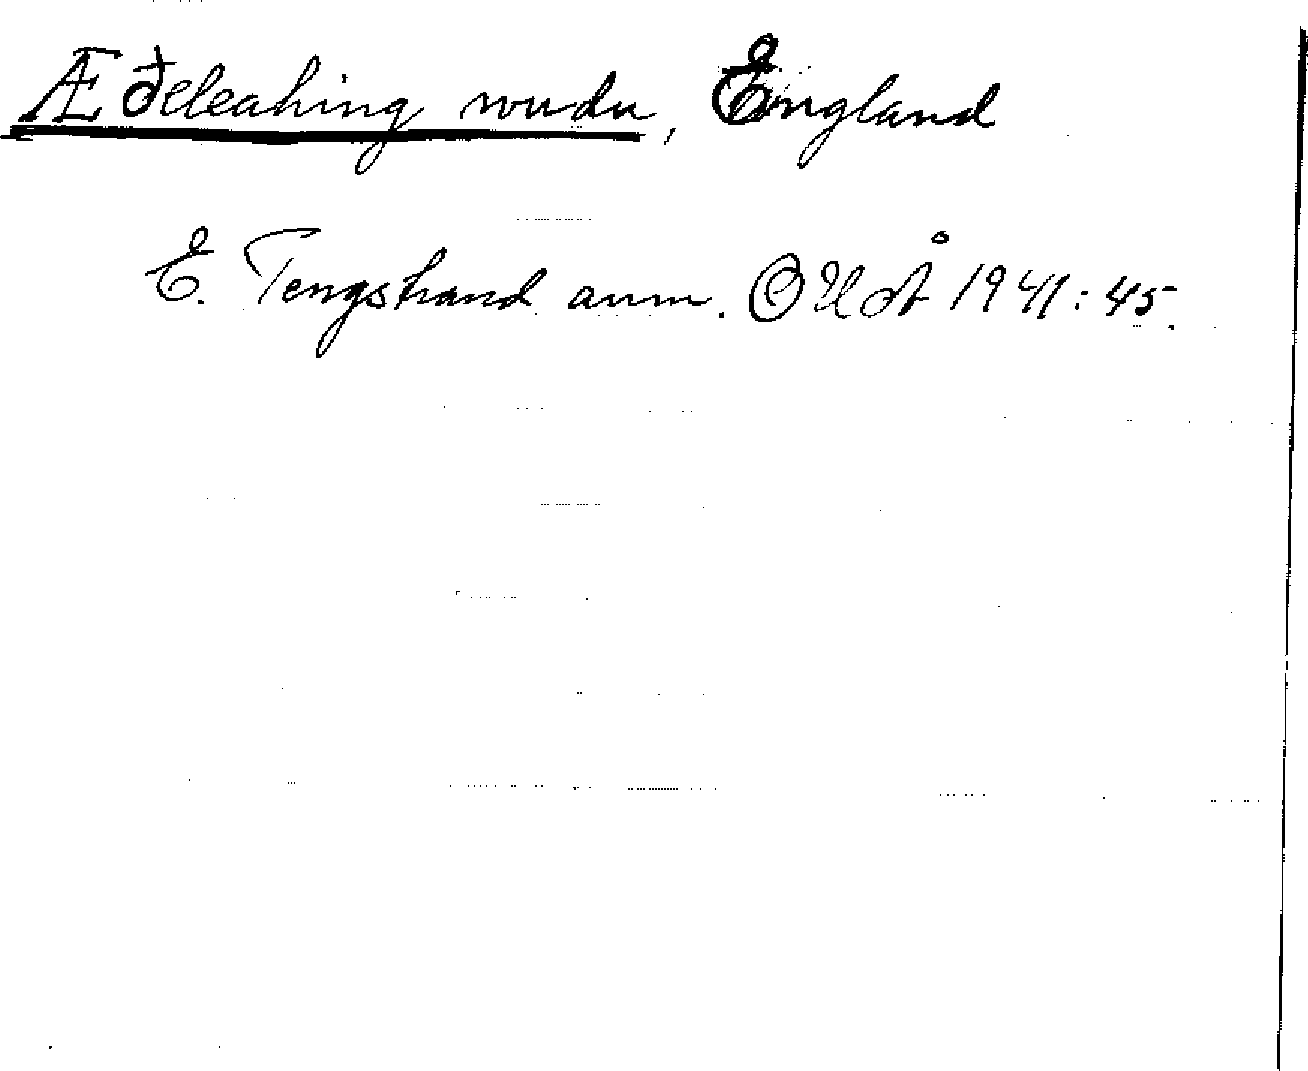 Æðeleahing wudu, England
E. Tengstrand anm. OUÅ 1941: 45.